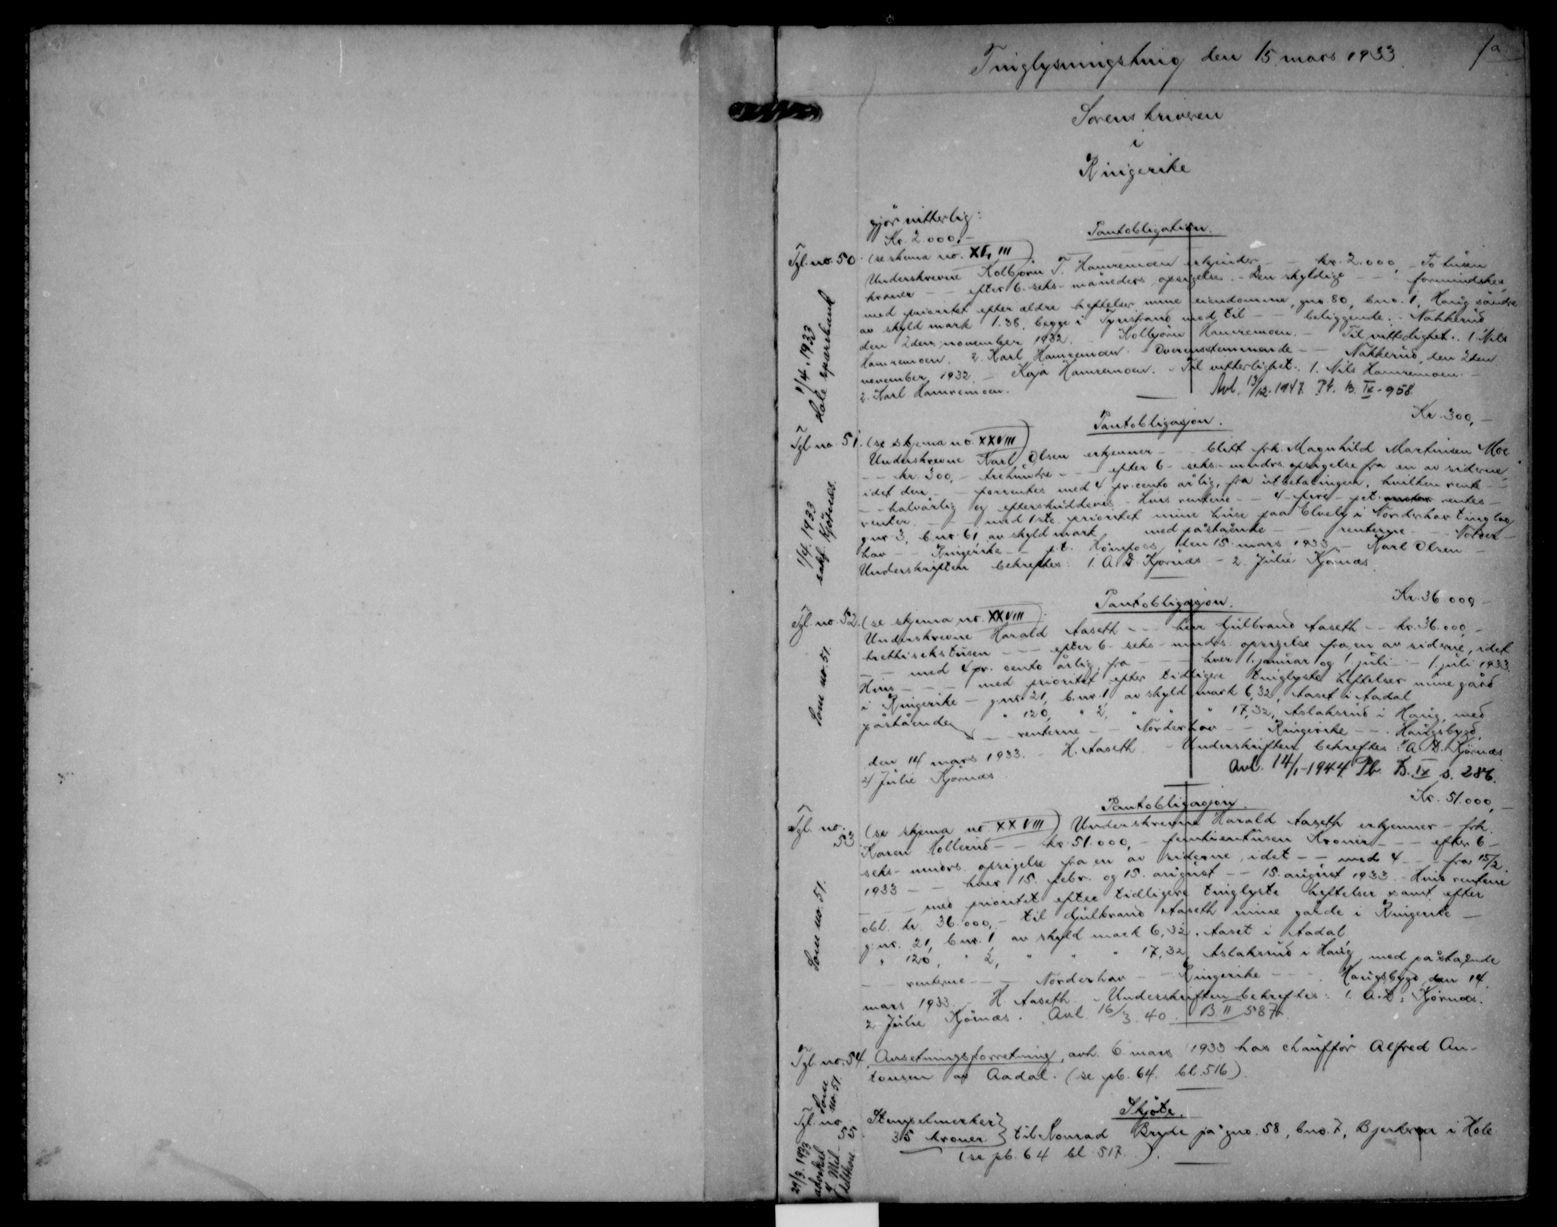 Tinglysningsting den 15 mars 1933.
1a
Sorenskriveren
i
Ringerike
gjør vitterlig:
Kr. 2.000,-
Pantobligation.
Tgl. no. 50.
(se skema no. XV, III)
Underskrevne Kolbjørn T. Hamremoen erkjender - - kr. 2.000, - To tusen
kroner - - efter 6 - seks - måneders opsigelse. - Den skyldige - - formindskes
med prioritet efter ældre heftelser mine eiendomme, gnr. 80, bno. 1, Haug søndre
av skyld mark 1.38, begge i Tyristrand med til - - beliggende. Nakkerud
den 2den november 1932. Kolbjørn Hamremoen. - Til vitterlighet. 1. Nils
Hamremoen. 2. Karl Hamremoen. Overensstemmende - - Nakkerud, den 2den
november 1932. - Kaja Hamremoen. - Til vitterlighet. 1. Nils Hamremoen. -
2. Karl Hamremoen.
Avl. 13/12-1947. Pt. B. IX - 958
1/4. 1933
Hole sparebank
Kr. 300,-
Pantobligasjon.
Tgl no. 51.
(se skjema no. XXVIII)
Underskrevne Karl Olsen erkjenner - - blitt frk. Magnhild Martinsen Moe
- - kr. 300, - trehundre - - efter 6 - seks - mndrs opsigelse fra en av siderne
idet den - - forrentes med 4 pr. cento årlig, fra utbetalingen, hvilken rente -
- - halvårlig og efterskuddsvis - Hvis rentene - - 4 - fire - pct. rentes -
renter. - - med 1ste prioritet mine huse paa Elvely i Norderhov tinglag
gnr. 3, bnr. 61 av skyld mark med påstående - - renterne - - Norder
hov - - Ringerike - p.t. Hønefoss, den 15. mars 1933 - Karl Olsen -
Underskriften bekreftes: 1. A. D. Kjørnæs - 2. Julie Kjørnæs.
1/4. 1933
sakf. Kjørnæs.
Kr. 36 000, -
Pantobligasjon.
Tgl no. 52.
(se skjema no. XXVIII)
Underskrevne Harald Aaseth - - herr Gulbrand Aaseth - - kr. 36.000, -
trettisekstusen - - efter 6 - seks - mndrs opsigelse fra en av siderne, idet
- - med 4 pr. cento årlig, fra - - hver 1. januar og 1. juli - - 1. juli 1933.
Hvis - - - med prioritet efter tidligere tinglyste heftelser mine gård
i Ringerike - gnr. 21, bnr. 1 av skyld mark 6,32, Aaset i Aadal
" 120, " 2, " " " 17,32, Aslaksrud i Haug, med
påstående - - renterne - - Norderhov - - Ringerike - - Haugsbygd,
den 14 mars 1933. - H. Aaseth - Underskriften bekreftes: 1. A. D. Kjørnæs
2. Julie Kjørnæs
Avl. 14/1-1944 Pb B. IX s. 286.
Som no. 51.
Kr. 51.000,-
Pantobligasjon.
Tgl. no. 53
(se skjema no XXVIII) Underskrevne Harald Aaseth erkjenner - frk.
Karen Hollerud - - kr. 51.000, - femtientusen Kroner - - efter 6 -
seks - mndrs opsigelse fra en av siderne, idet - - med 4 - - fra 15/2
1933 - - hver 15. febr. og 15. august - - 15. august 1933. Hvis rentene
- - - med prioritet efter tidligere tinglyste heftelser samt efter
obl. kr. 36.000, - til Gulbrand Aaseth mine gårde i Ringerike -
g.nr. 21, bnr. 1 av skyld mark 6,32, Aaset i Aadal
" 120, " 2, " " " 17,32, Aslaksrud i Haug, med påstående
- - renterne - - Norderhov - - Ringerike - - Haugsbygd, den 14
mars 1933. - H. Aaseth. - Underskriften bekreftes: 1. A. D. Kjørnæs.
2. Julie Kjørnæs. Avl. 16/3. 40 B II 587
Som no. 51.
Tgl. no. 54.
Ansetningsforretning, avh. 6 mars 1933 hos chauffør Alfred An-
tonsen av Aadal. (se pb. 64. bl. 516).
Som no. 51.
Skjøte.
Tgl. no. 55.
Stempelmerker
35 kroner } til Konrad Bryde på gno. 58, bno. 7, i Hole
(se pb. 64 bl. 517.).
29/3. 1933
advokat